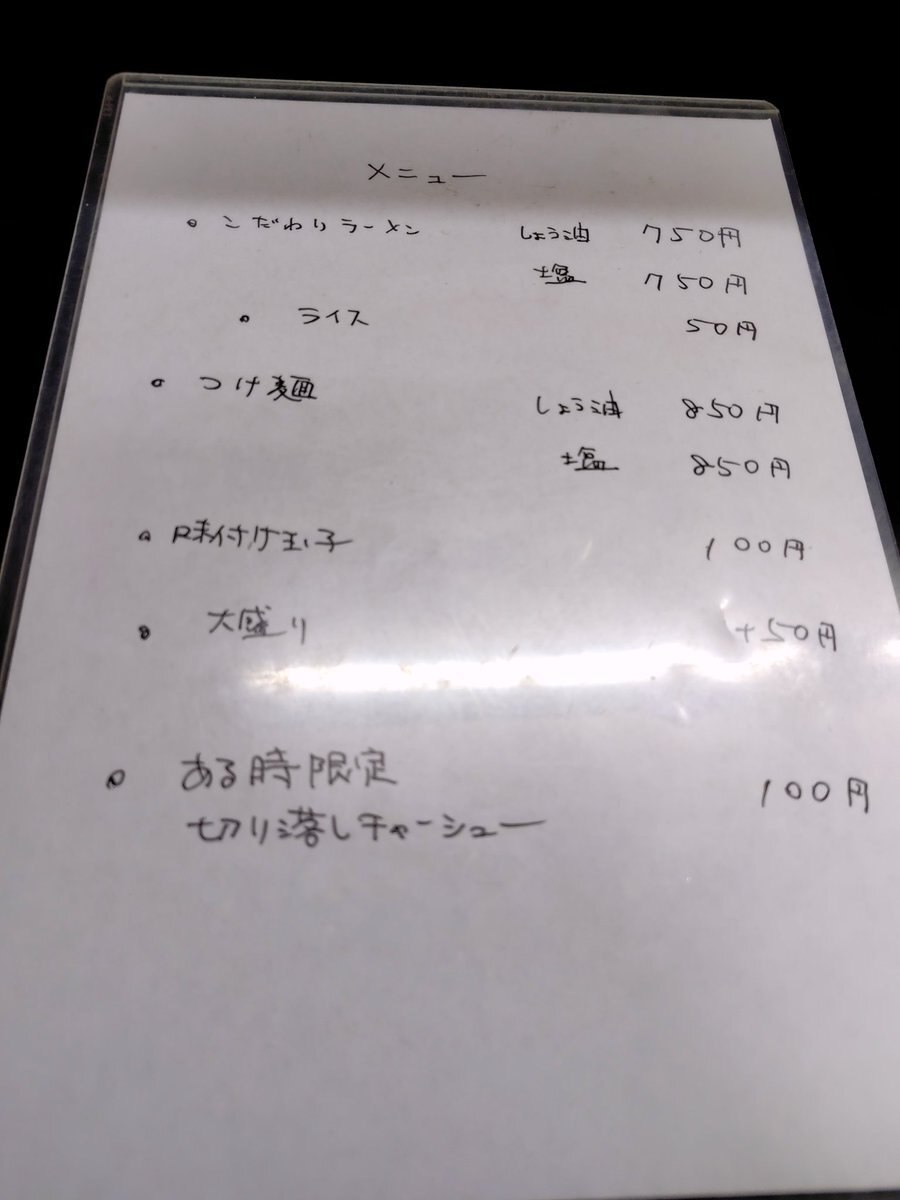 メニュー
。こだわりラーメン しょう油 750円
塩 750円
。ライス 50円
。つけ麺 しょう油 850円
塩 850円
。味付け玉子 100円
。大盛り +50円
。ある時限定 100円
切り落しチャーシュー